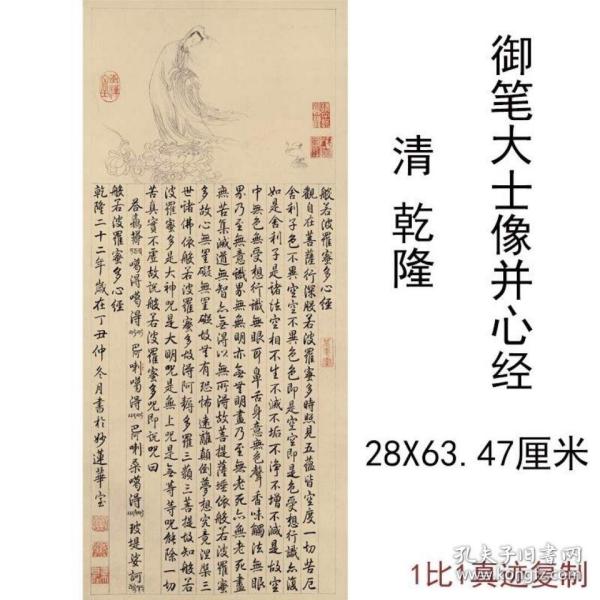 御笔大士像并心经
清 乾隆
28X63.47厘米
1比1真迹复制
孔夫子旧书网
般若波羅蜜多心經
觀自在菩薩行深般若波羅蜜多時照見五蘊皆空度一切苦厄
舍利子色不異空空不異色色即是空空即是色受想行識亦復
如是舍利子是諸法空相不生不滅不垢不淨不增不減是故空
中無色無受想行識無眼耳鼻舌身意無色聲香味觸法無眼
界乃至無意識界無無明亦無無明盡乃至無老死亦無老死盡
無苦集滅道無智亦無得以無所得故菩提薩埵依般若波羅蜜
多故心無罣礙無罣礙故無有恐怖遠離顛倒夢想究竟涅槃三
世諸佛依般若波羅蜜多故得阿耨多羅三藐三菩提故知般若
波羅蜜多是大神咒是大明咒是無上咒是無等等咒能除一切
苦真實不虛故說般若波羅蜜多咒即說咒曰
噶得噶得 巴喇噶得 巴喇桑噶得 玻提娑訶
般若波羅蜜多心經
乾隆二十二年歲在丁丑仲冬月書於妙蓮華室